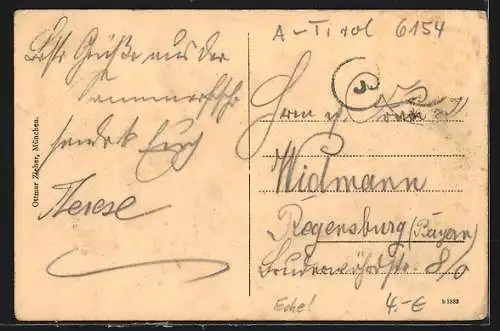 A - Tirol 6154
Beste Grüße aus der
Sommerfrische
sendet Euch
Therese
Ottmar Zieher, München.
Herrn u. Frau
Widmann
Regensburg (Bayern)
Bruderwöhrdstr. 8/0
Ecke! 4.-€